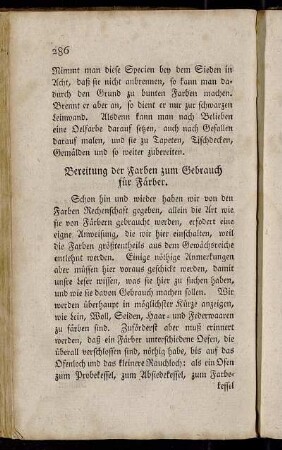 286
Nimmt man diese Specien bey dem Sieden in
Acht, daß sie nicht anbrennen, so kann man da-
durch den Grund zu bunten Farben machen.
Brennt er aber an, so dient er nur zur schwarzen
Leinwand. Alsdenn kann man nach Belieben
eine Oelfarbe darauf setzen, auch nach Gefallen
darauf malen, und sie zu Tapeten, Tischdecken,
Gemälden und so weiter zubereiten.
Bereitung der Farben zum Gebrauch
für Färber.
Schon hin und wieder haben wir von den
Farben Rechenschaft gegeben, allein die Art wie
sie von Färbern gebraucht werden, erfodert eine
eigne Anweisung, die wir hier einschalten, weil
die Farben größtentheils aus dem Gewächsreiche
entlehnt werden. Einige nöthige Anmerkungen
aber müssen hier voraus geschickt werden, damit
unsre Leser wissen, was sie hier zu suchen haben,
und wie sie davon Gebrauch machen sollen. Wir
werden überhaupt in möglichster Kürze anzeigen,
wie Lein, Woll, Seiden, Haar- und Federwaaren
zu färben sind. Zuförderst aber muß erinnert
werden, daß ein Färber unterschiedne Oefen, die
überall verschlossen sind, nöthig habe, bis auf das
Ofenloch und das kleinere Rauchloch: als ein Ofen
zum Probekessel, zum Absiedekessel, zum Farbe-
kessel